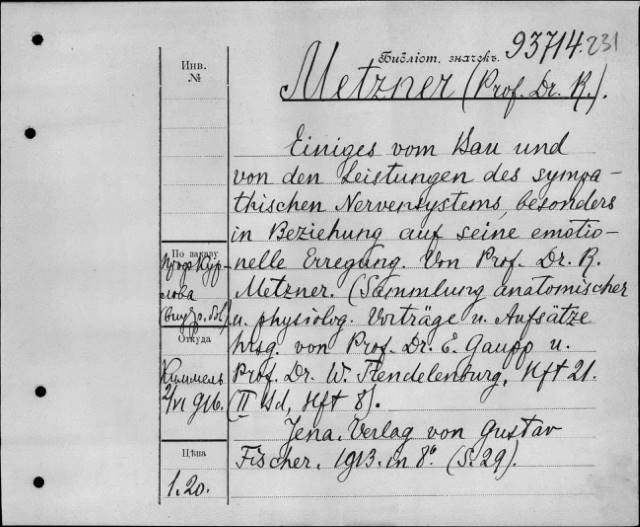 Библіот. значекъ. 93714. 231
Metzner (Prof. Dr. R.).
Einiges vom Bau und
von den Leistungen des sympa-
thischen Nervensystems, besonders
in Beziehung auf seine emotio-
nelle Erregung. Von Prof. Dr. R.
Metzner. (Sammlung anatomischer
u. physiolog. Vorträge u. Aufsätze
hrsg. von Prof. Dr. E. Gaupp u.
Prof. Dr. W. Trendelenburg, Hft 21.
(II Bd, Hft 8).
Jena. Verlag von Gustav
Fischer. 1913. in 8° (S. 29).
Инв.
№
По заказу
проф. Кур-
лова
Откуда
Киммель
2/VI 916.
Цѣна
1.20.